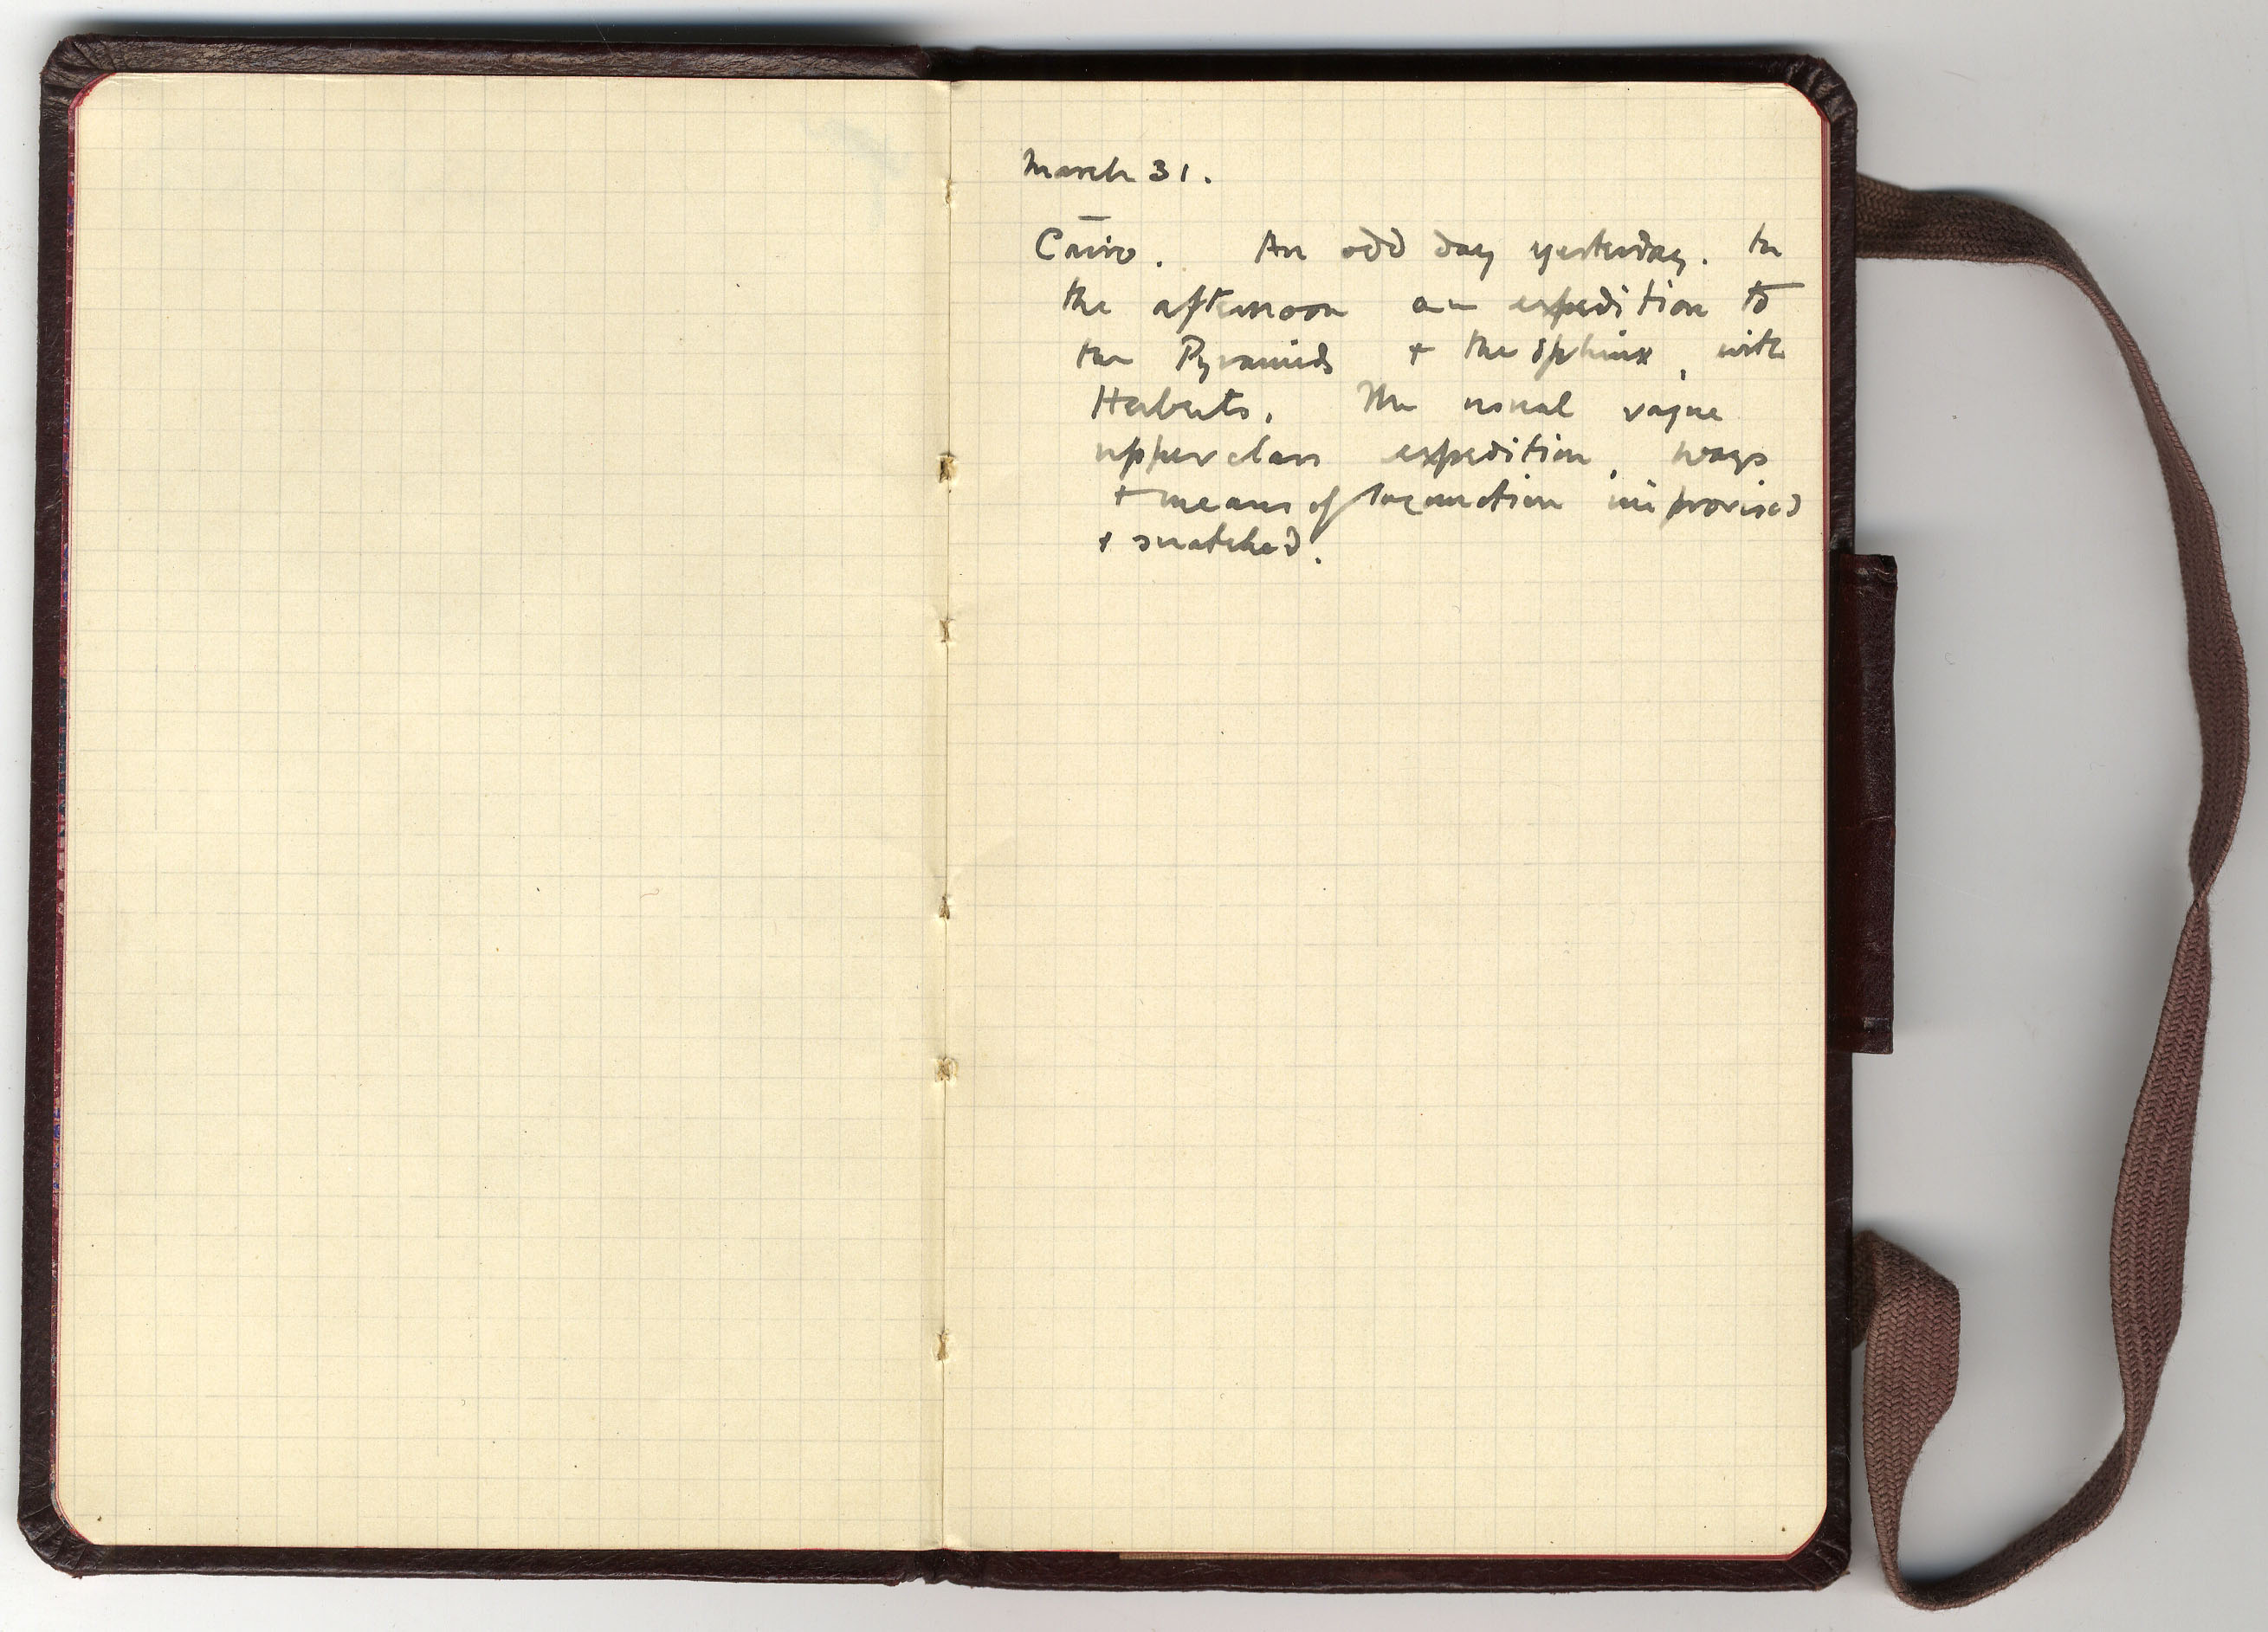 March 31.
Cairo. An odd day yesterday. In
the afternoon an expedition to
the Pyramids + the Sphinx, with
Herberts. The usual vague
upper class expedition, ways
+ means of locomotion improvised
+ snatched.